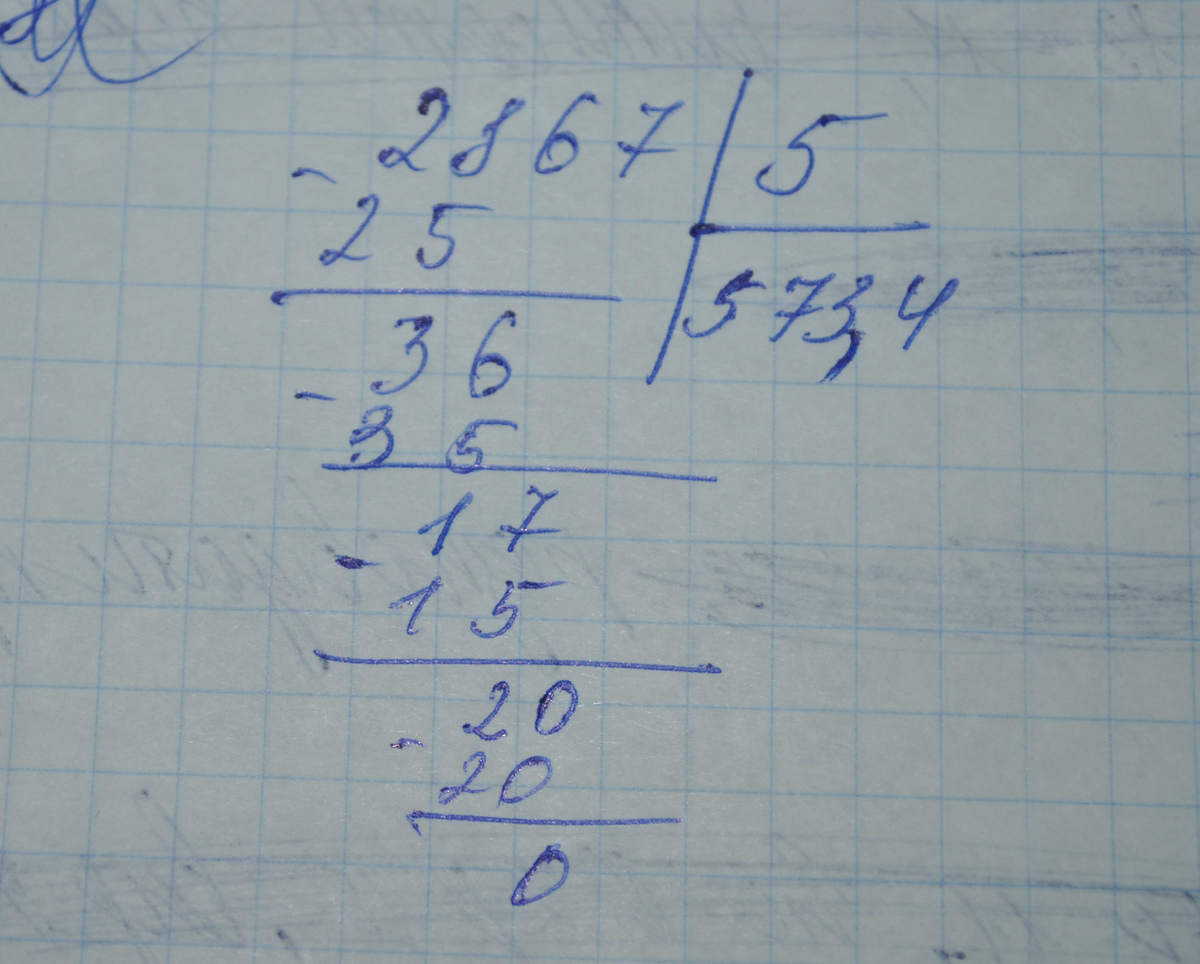 - 2867 | 5
25
573,4
36
- 35
17
- 15
20
- 20
0